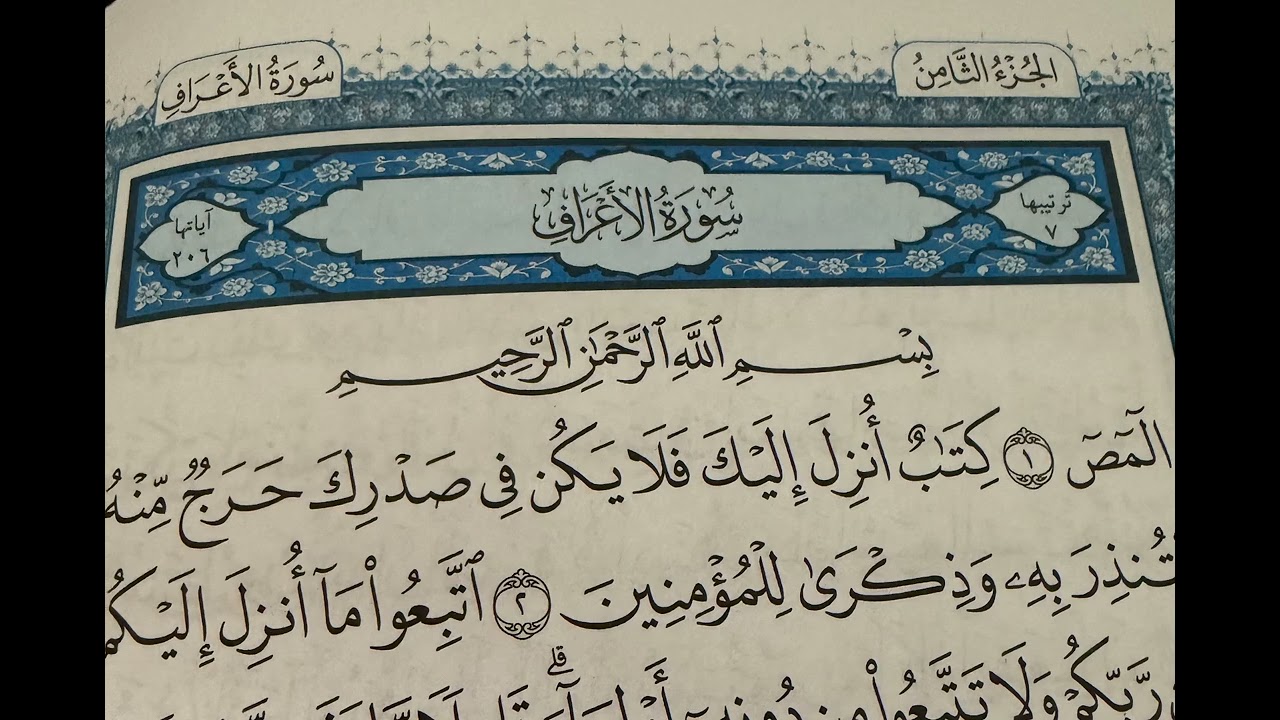 الجُزْءُ الثَّامِنُ
سُورَةُ الأَعْرَافِ
تَرتيبها
٧
سُورَةُ الأَعْرَافِ
آياتها
٢٠٦
بِسْمِ ٱللَّهِ ٱلرَّحْمَٰنِ ٱلرَّحِيمِ
الٓمٓصٓ ١ كِتَٰبٌ أُنزِلَ إِلَيْكَ فَلَا يَكُن فِي صَدْرِكَ حَرَجٌ مِّنْهُ
لِتُنذِرَ بِهِۦ وَذِكْرَىٰ لِلْمُؤْمِنِينَ ٢ ٱتَّبِعُوا۟ مَآ أُنزِلَ إِلَيْكُم
رَّبِّكُمْ وَلَا تَتَّبِعُوا۟ مِن دُونِهِۦٓ